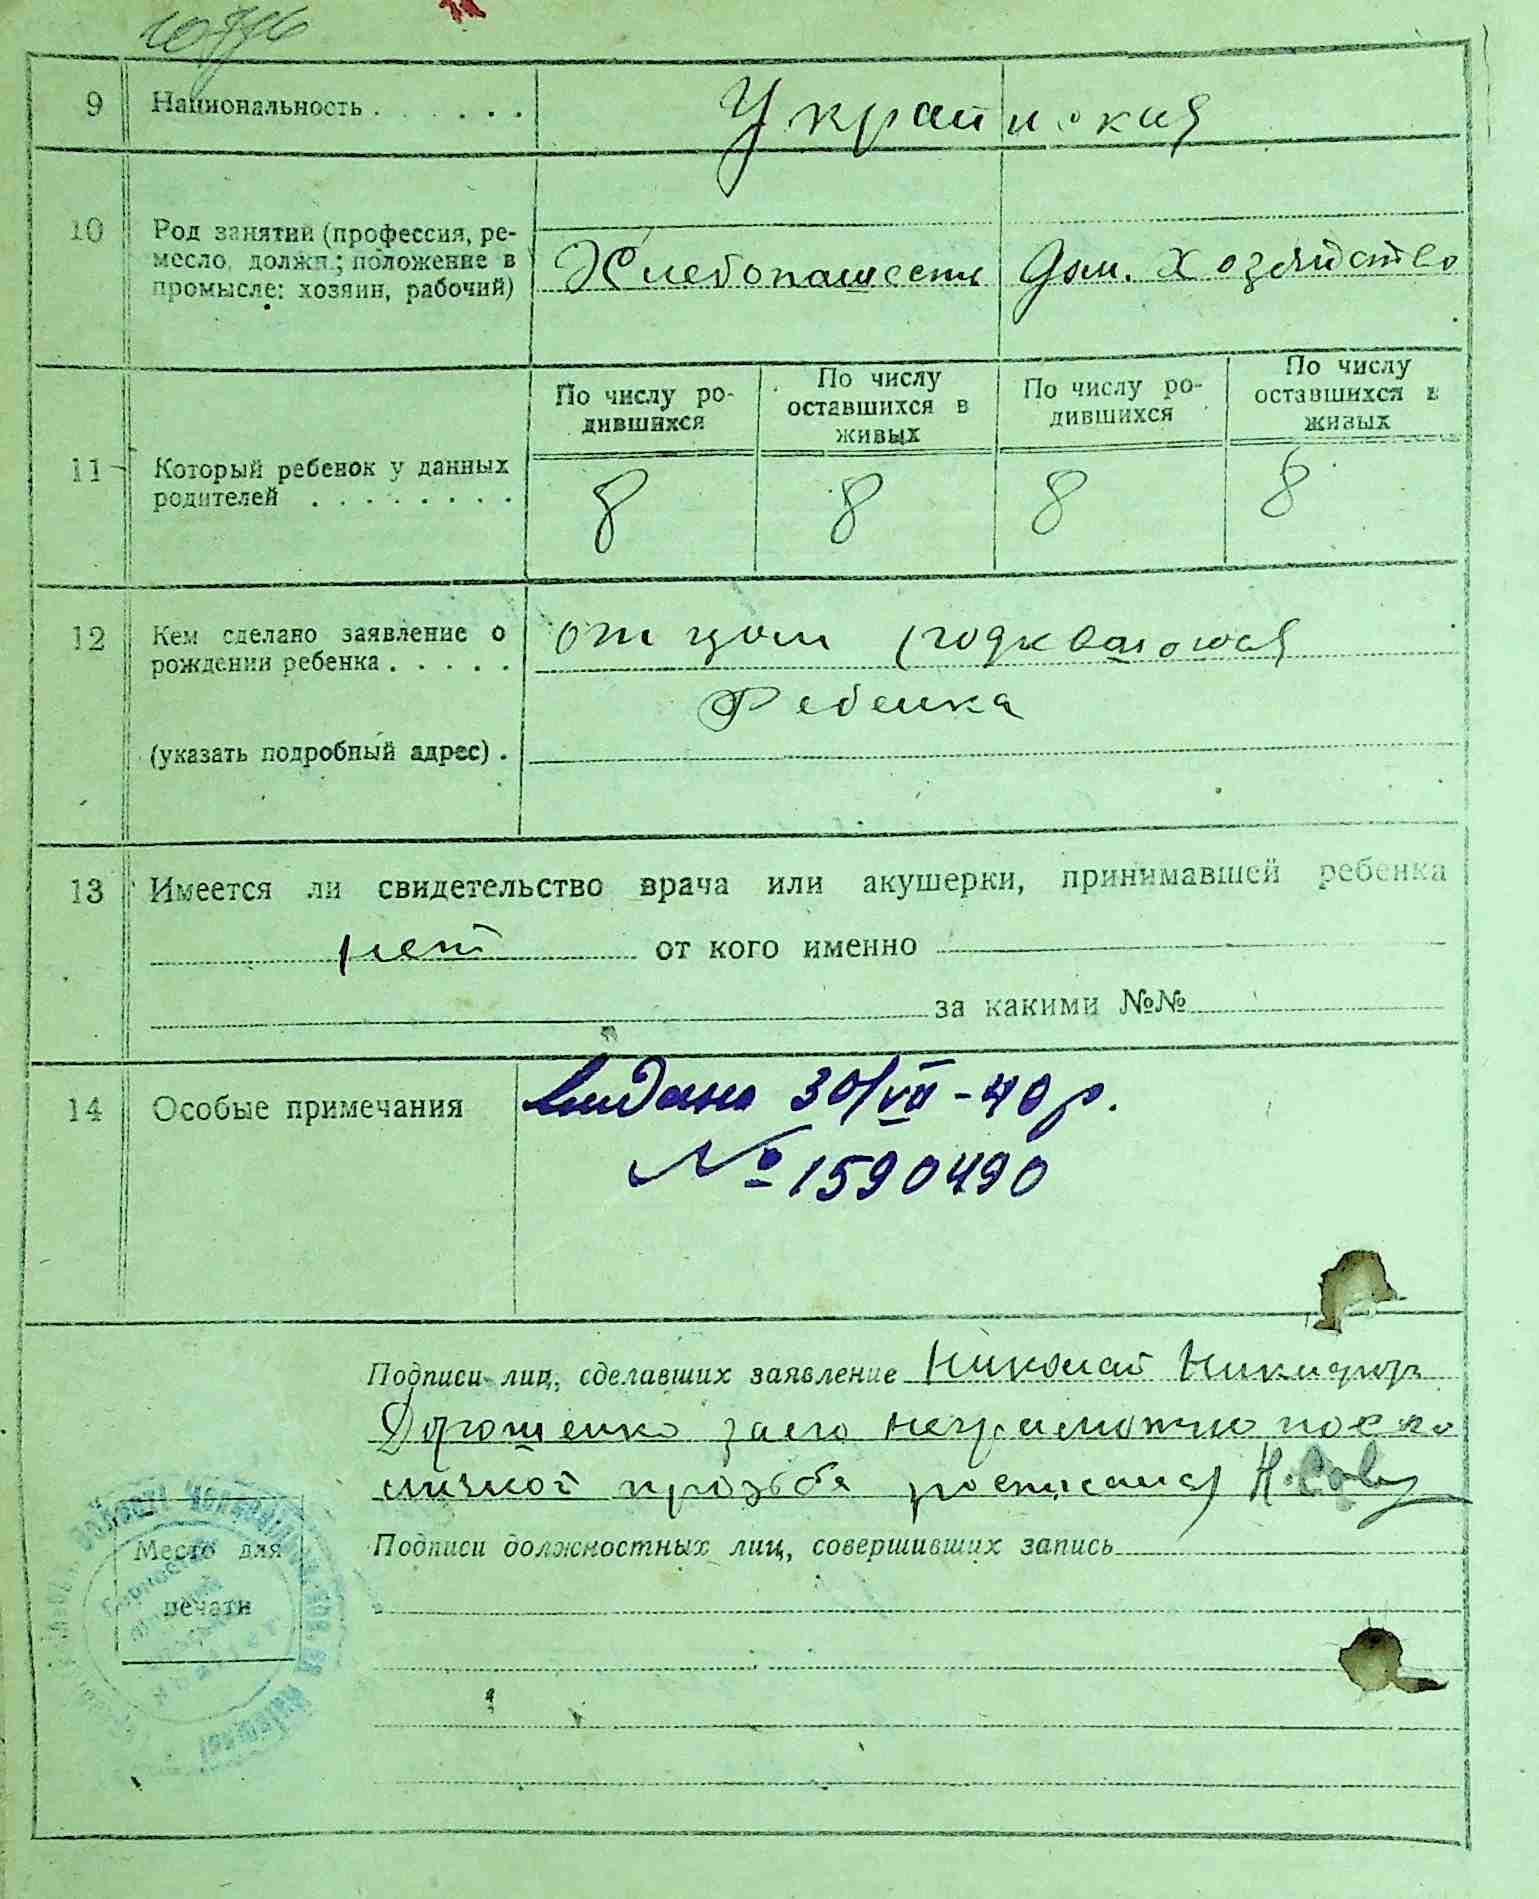 9 Национальность . . . . . . Украинская
10 Род занятий (профессия, ре-
месло, должн.; положение в
промысле: хозяин, рабочий)
Хлебопашест Дом. хозяйство
По числу ро-
дившихся
По числу
оставшихся в
живых
По числу ро-
дившихся
По числу
оставшихся в
живых
11 Который ребенок у данных
родителей . . . . . . . .
8 8 8 8
12 Кем сделано заявление о
рождении ребенка . . . . .
отцом
Ребенка
(указать подробный адрес) .
13 Имеется ли свидетельство врача или акушерки, принимавшей ребенка
нет от кого именно
за какими №№
14 Особые примечания
видано 30/VII-40 р.
№ 1590490
Подписи лиц, сделавших заявление Николай Никифор
Дорошенко за его неграможно по ево
личной прозьбе росписался Н. Сов
Подписи должностных лиц, совершивших запись
Место для
печати